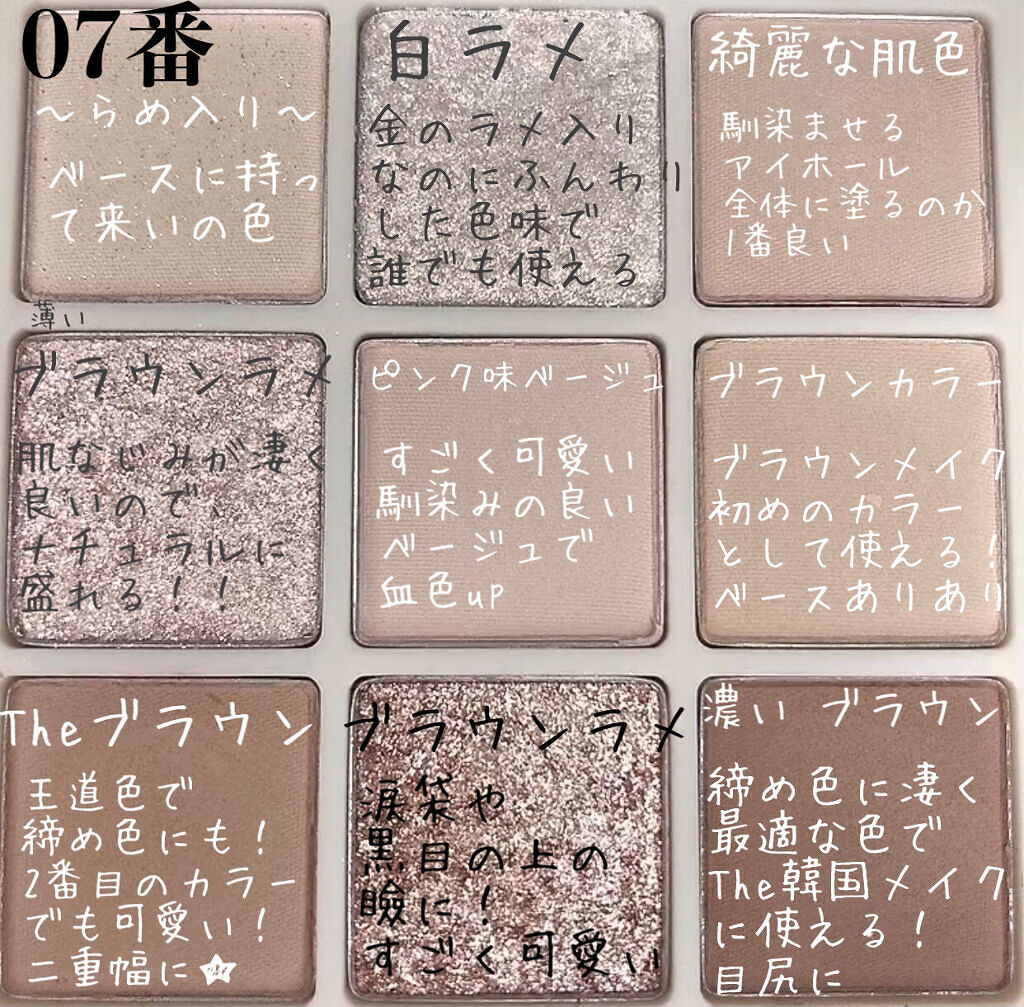 07番
〜らめ入り〜
ベースに持っ
て来いの色
白ラメ
金のラメ入り
なのにふんわり
した色味で
誰でも使える
綺麗な肌色
馴染ませる
アイホール
全体に塗るのが
1番良い
薄い
ブラウンラメ
肌なじみが凄く
良いので、
ナチュラルに
盛れる!!
ピンク味ベージュ
すごく可愛い
馴染みの良い
ベージュで
血色up
ブラウンカラー
ブラウンメイク
初めのカラー
として使える!
ベースありあり
Theブラウン
王道色で
締め色にも!
2番目のカラー
でも可愛い!
二重幅に★
ブラウンラメ
涙袋や
黒目の上の
瞼に!
すごく可愛い
濃い ブラウン
締め色に凄く
最適な色で
The韓国メイク
に使える!
目尻に